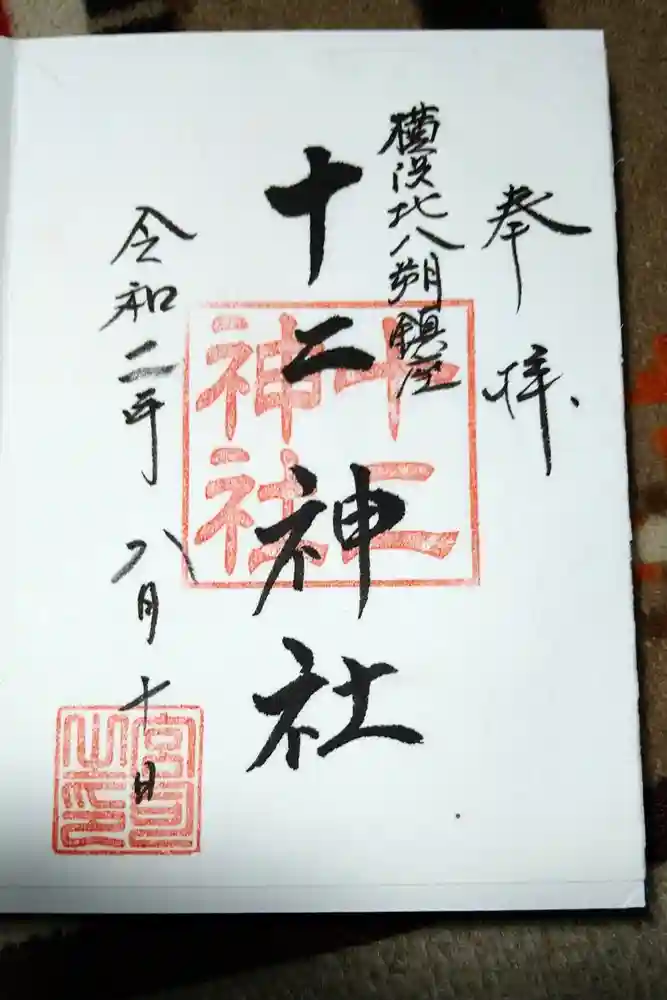 奉拝
横浜北八朔鎮座
十二神社
十二
神社
令和二年八月十日
宮司
之印